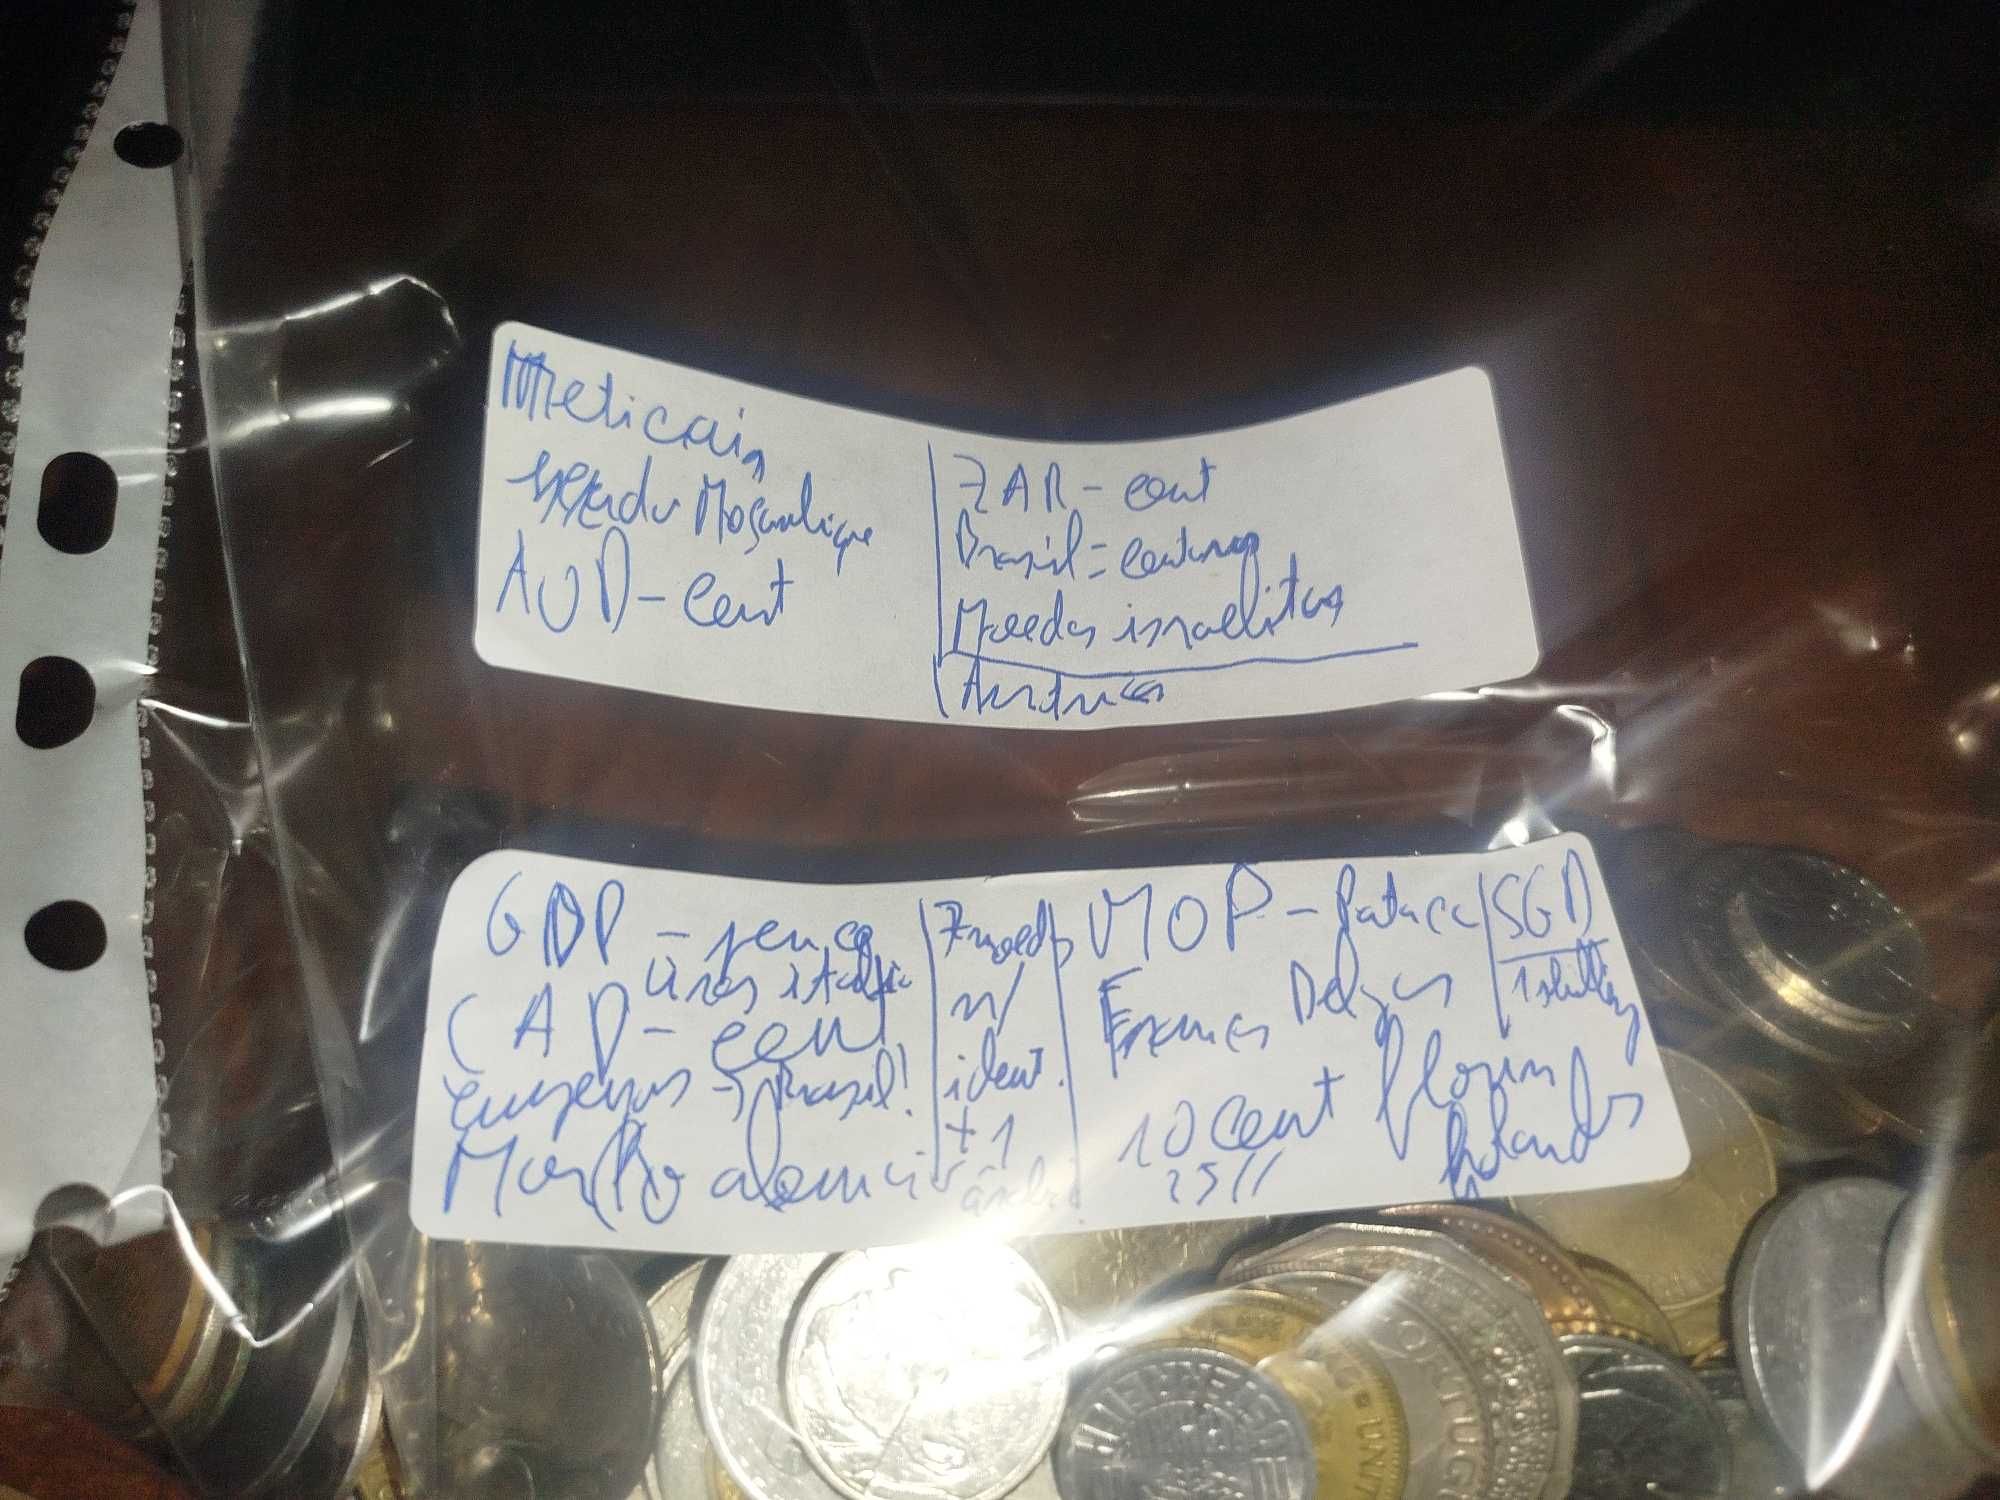 Meticais
Moçambique
AUD - cent
ZAR - cent
Brasil = centavos
Moedas israelitas
Austríaca
GBP - pence
Liras italia
CAD - cent
cruzeiros → Brasil!
Marko alemão
7 moedas
n/
ident.
+ 1
MOP - Pataca
Francos Belgas
10 cent florim
25 //
holandês
SGD
1 shilling
ORTUG